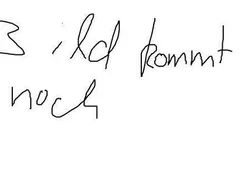 Bild kommt
noch